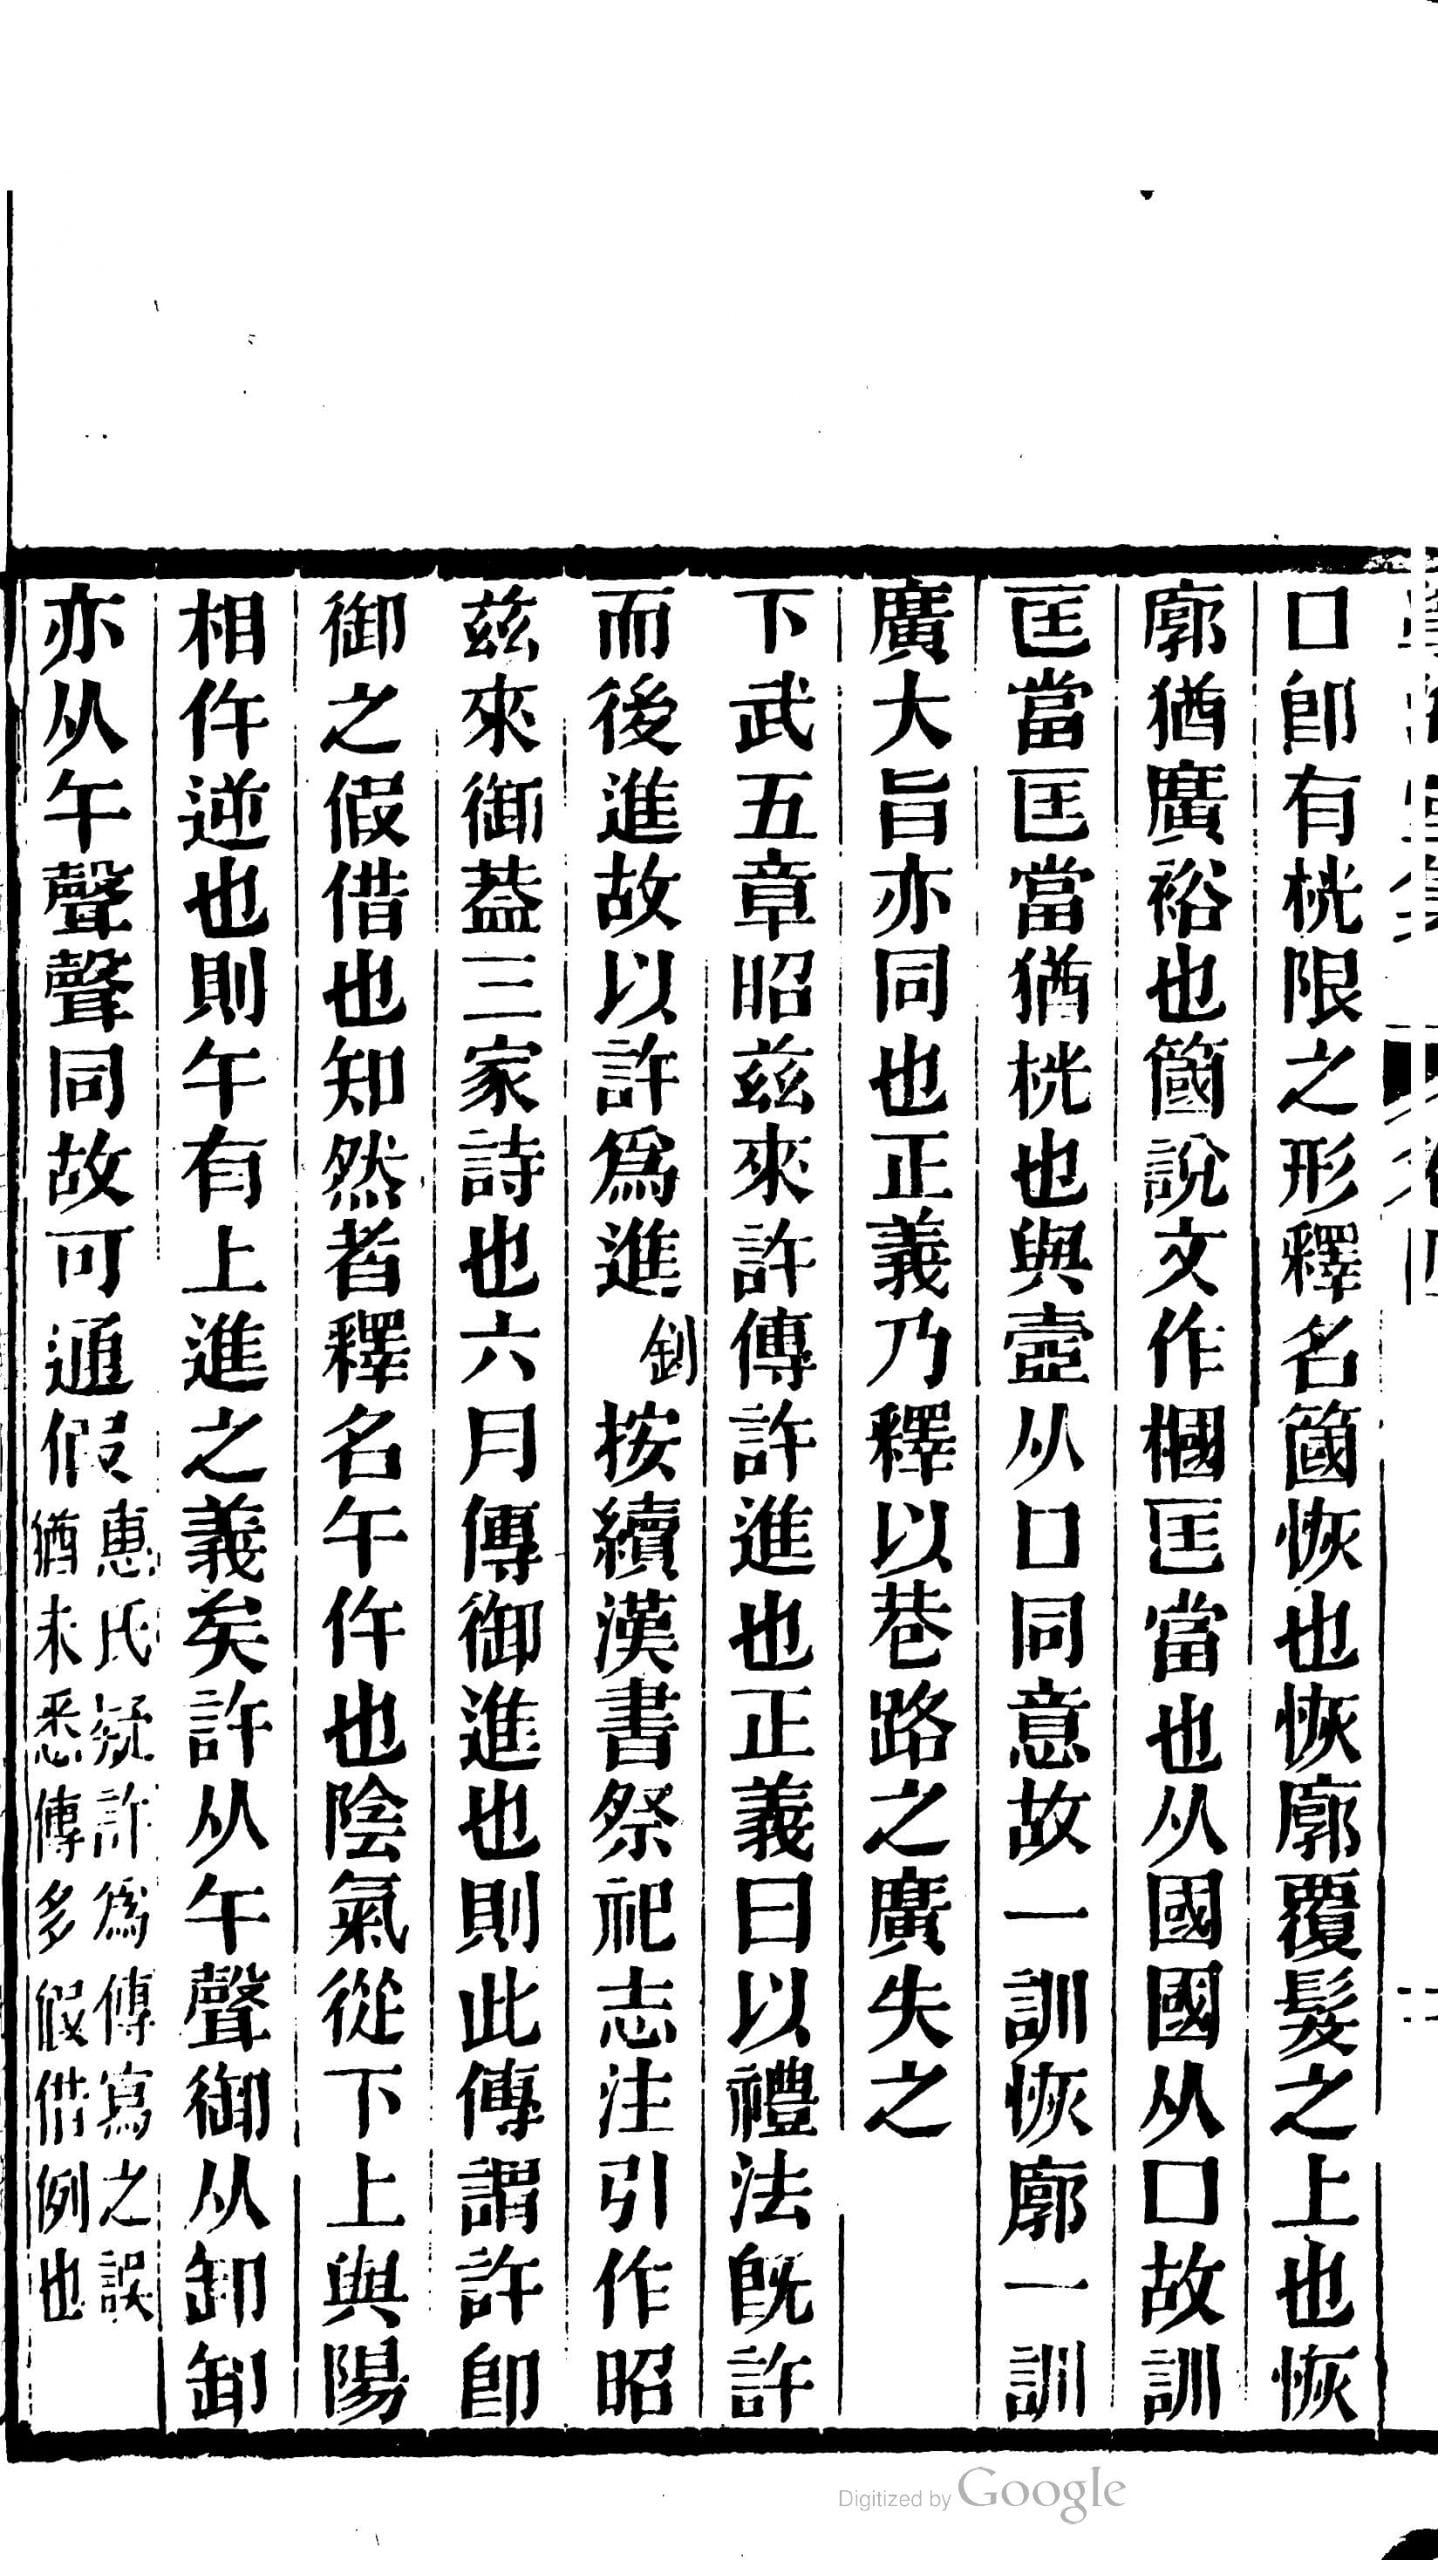 口卽有桄限之形釋名簂恢也恢廓覆髮之上也恢
廓猶廣裕也簂說文作槶匡當也从國國从囗故訓
匡當匡當猶桄也與壼从囗同意故一訓恢廓一訓
廣大旨亦同也正義乃釋以巷路之廣失之
下武五章昭兹來許傳許進也正義曰以禮法旣許
而後進故以許爲進釗按續漢書祭祀志注引作昭
兹來御葢三家詩也六月傳御進也則此傳謂許卽
御之假借也知然者釋名午仵也陰氣從下上與陽
相仵逆也則午有上進之義矣許从午聲御从卸卸
亦从午聲聲同故可通假惠氏疑許爲傳寫之誤
猶未悉傳多假借例也
Digitized by Google